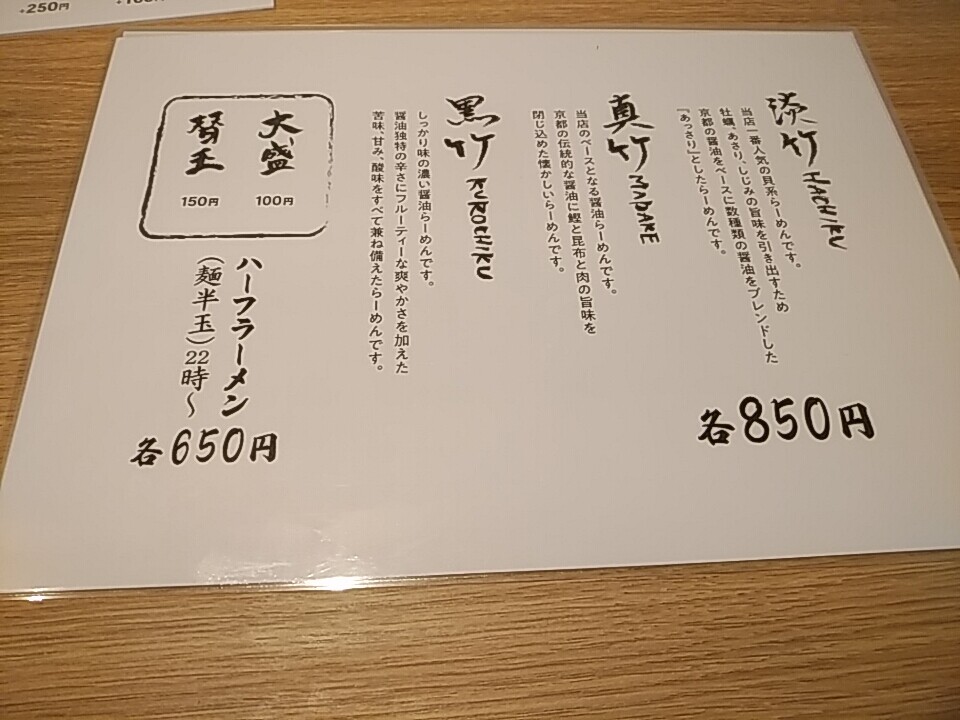 淡竹 HACHIKU
当店一番人気の貝系らーめんです。
牡蠣、あさり、しじみの旨味を引き出すため
京都の醤油をベースに数種類の醤油をブレンドした
『あっさり』としたらーめんです。
各850円
真竹 MADAKE
当店のベースとなる醤油らーめんです。
京都の伝統的な醤油に鰹と昆布と肉の旨味を
閉じ込めた懐かしいらーめんです。
黒竹 KUROCHIKU
しっかり味の濃い醤油らーめんです。
醤油独特の辛さにフルーティーな爽やかさを加えた
苦味、甘み、酸味をすべて兼ね備えたらーめんです。
大盛
100円
替玉
150円
ハーフラーメン
(麺半玉)22時〜
各650円
+250円